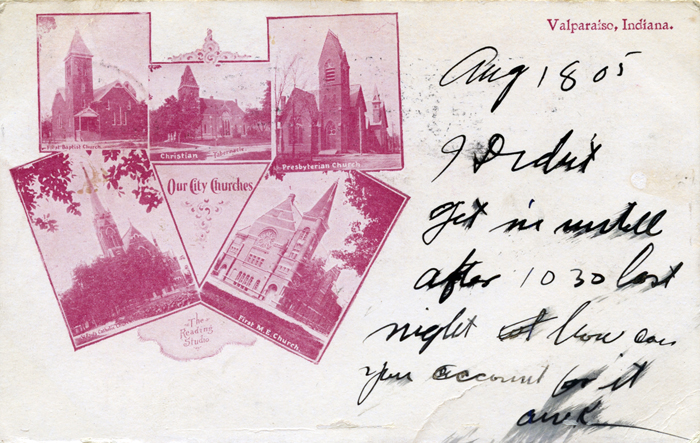 Valparaiso, Indiana.
First Baptist Church
Christian Tabernacle
Presbyterian Church
Our City Churches.
First M.E. Church
The
Reading
Studio
Aug 18 05
I Didn't
get in untill
after 10 30 last
night how can
you account for it